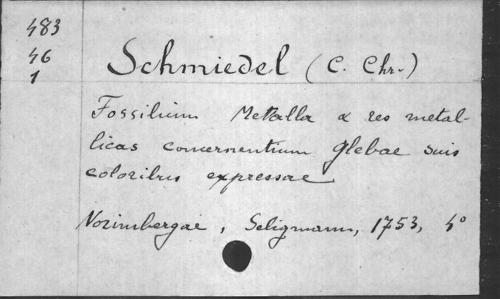 483
46
1
Schmiedel (C. Chr.)
Fossilium Metalla & res metal-
licas concernentium glebae suis
coloribus expressae
Norimbergae, Seligmann, 1753, 4°